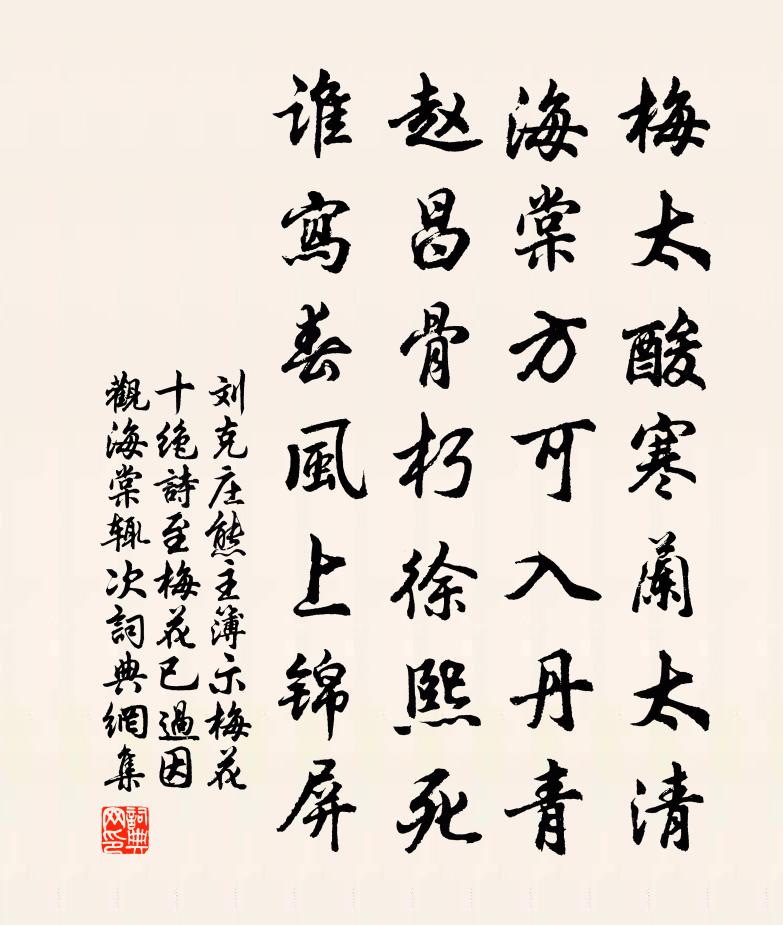 梅太酸寒蘭太清
海棠方可入丹青
赵昌骨朽徐熙死
谁寫春風上锦屏
刘克庄熊主簿示梅花
十绝詩至梅花已過因
觀海棠辄次詞典網集
詞典網印